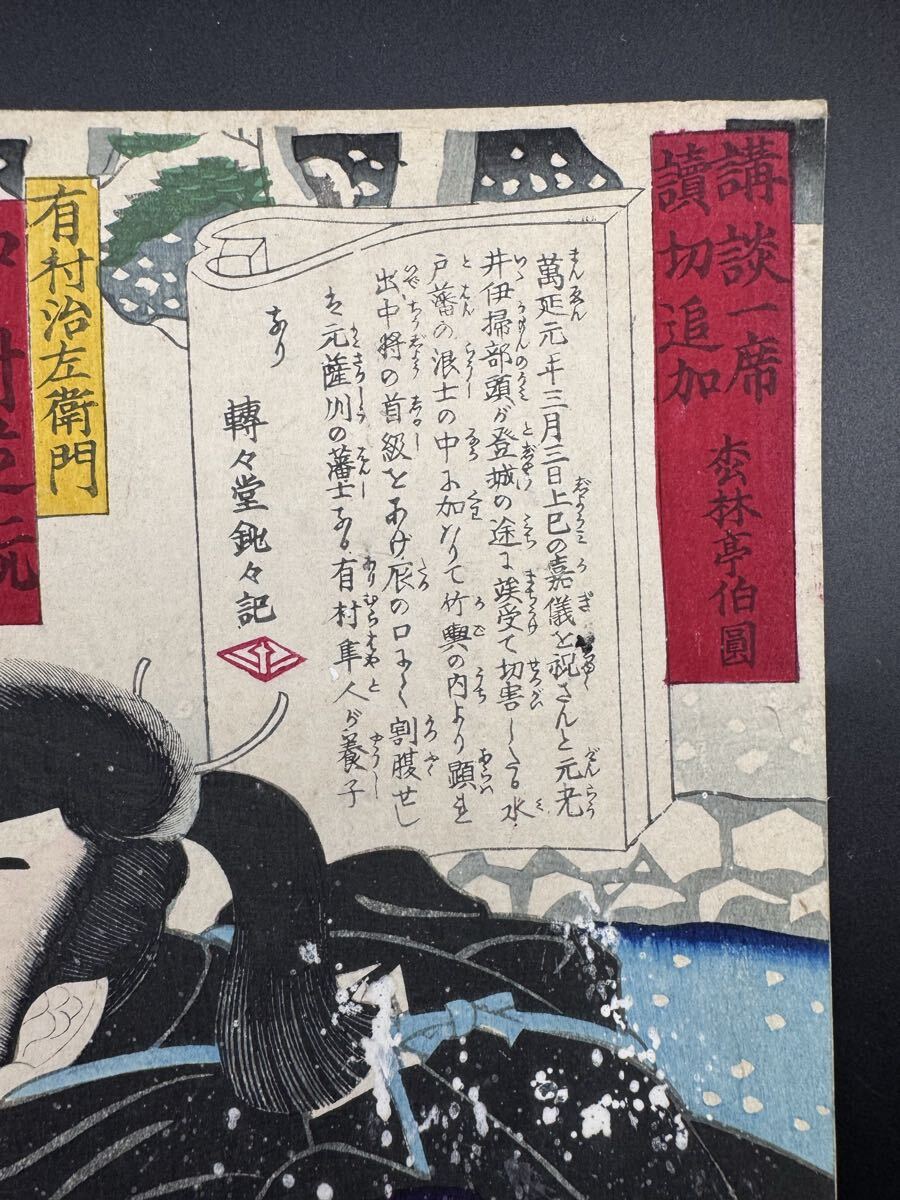 講談一席
讀切追加
枩林亭伯圓
萬延元年三月三日上巳の嘉儀を祝さんと元老
井伊掃部頭が登城の途に族受て切害したる水
戸藩の浪士の中に加なりて竹輿の内より顕
出中将の首級をあげ辰の口にて割腹せし
は元薩州の藩士なる有村隼人が養子
なり
轉々堂鈍々記
有村治左衛門